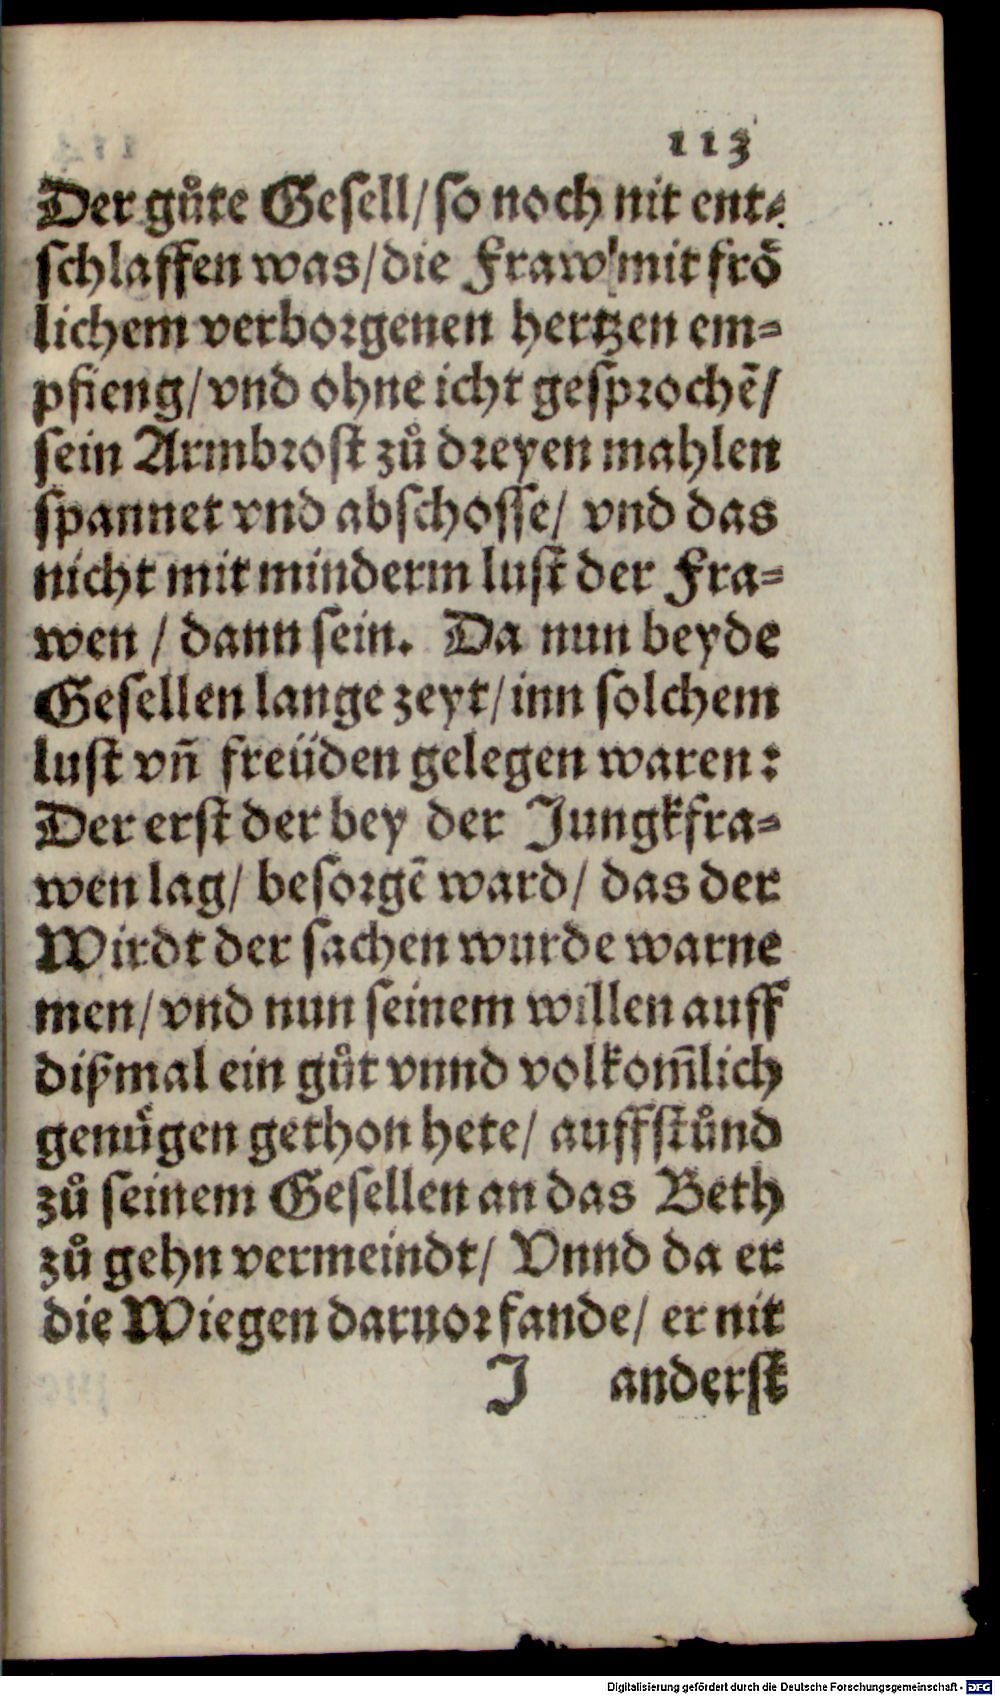 113
Der gůte Gesell/ so noch nit ent-
schlaffen was/ die Fraw mit frö
lichem verborgenen hertzen em-
pfieng/ vnd ohne icht gesprochẽ/
sein Armbrost zů dreyen mahlen
spannet vnd abschosse/ vnd das
nicht mit minderm lust der Fra-
wen / dann sein. Da nun beyde
Gesellen lange zeyt/ inn solchem
lust vñ freüden gelegen waren:
Der erst der bey der Jungkfra-
wen lag/ besorgẽ ward/ das der
Wirdt der sachen wurde warne
men/ vnd nun seinem willen auff
dißmal ein gůt vnnd volkom̃lich
genügen gethon hete/ auffstůnd
zů seinem Gesellen an das Beth
zů gehn vermeindt/ Vnnd da er
die Wiegen daruor fande/ er nit
J anderst
Digitalisierung gefördert durch die Deutsche Forschungsgemeinschaft - DFG